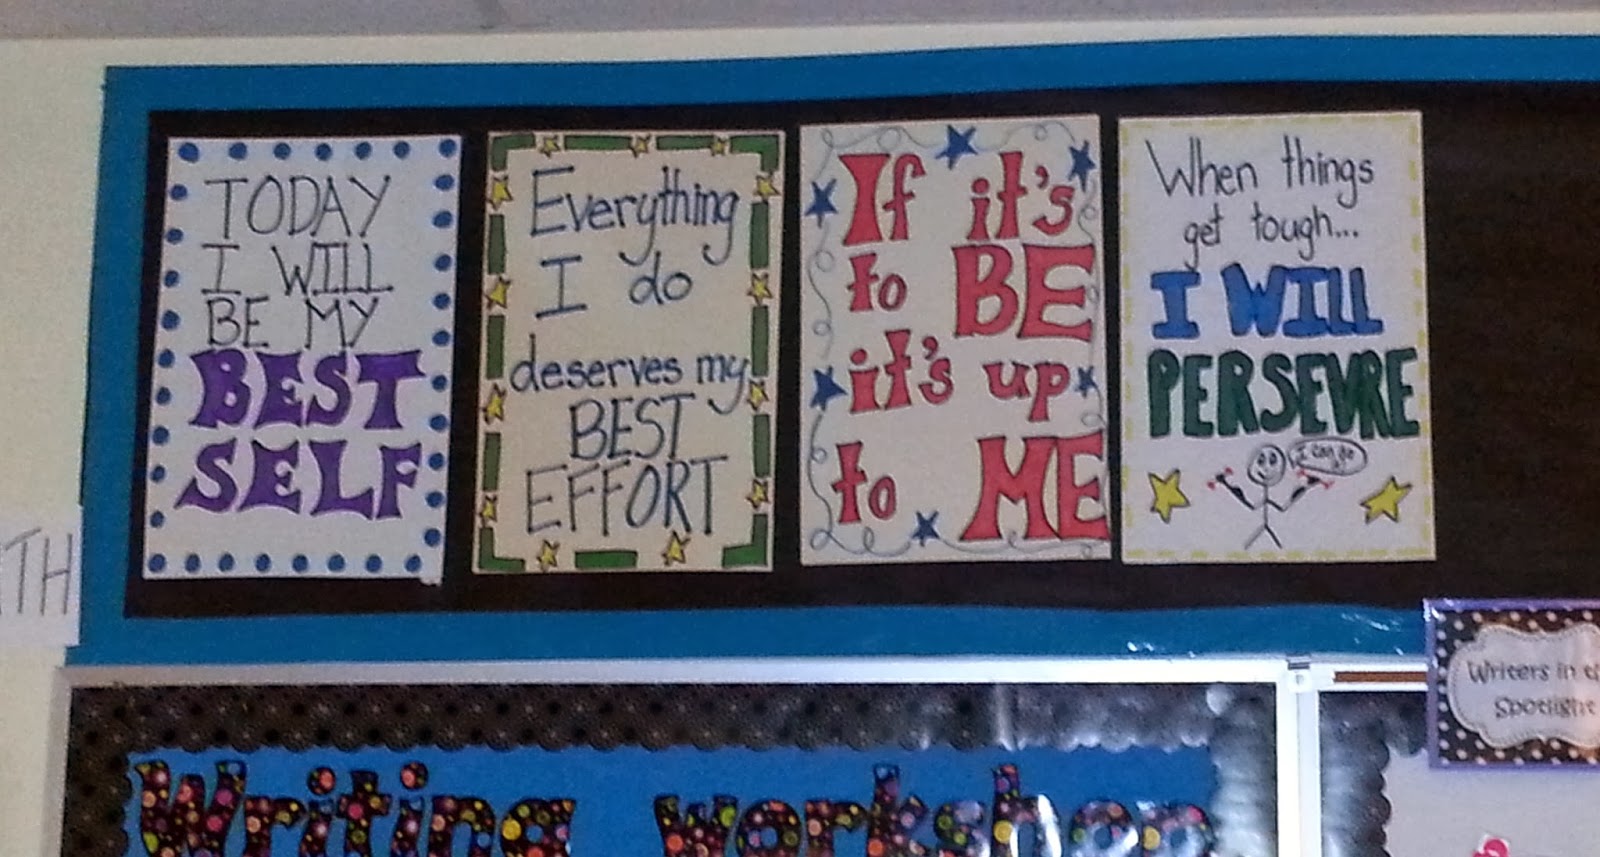 TODAY
I WILL
BE MY
BEST
SELF
Everything
I do
deserves my
BEST
EFFORT
If it's
to BE
it's up
to ME
When things
get tough...
I WILL
PERSEVRE
I can do
it!
TH
Writers in
Spotlight
Writing workshop